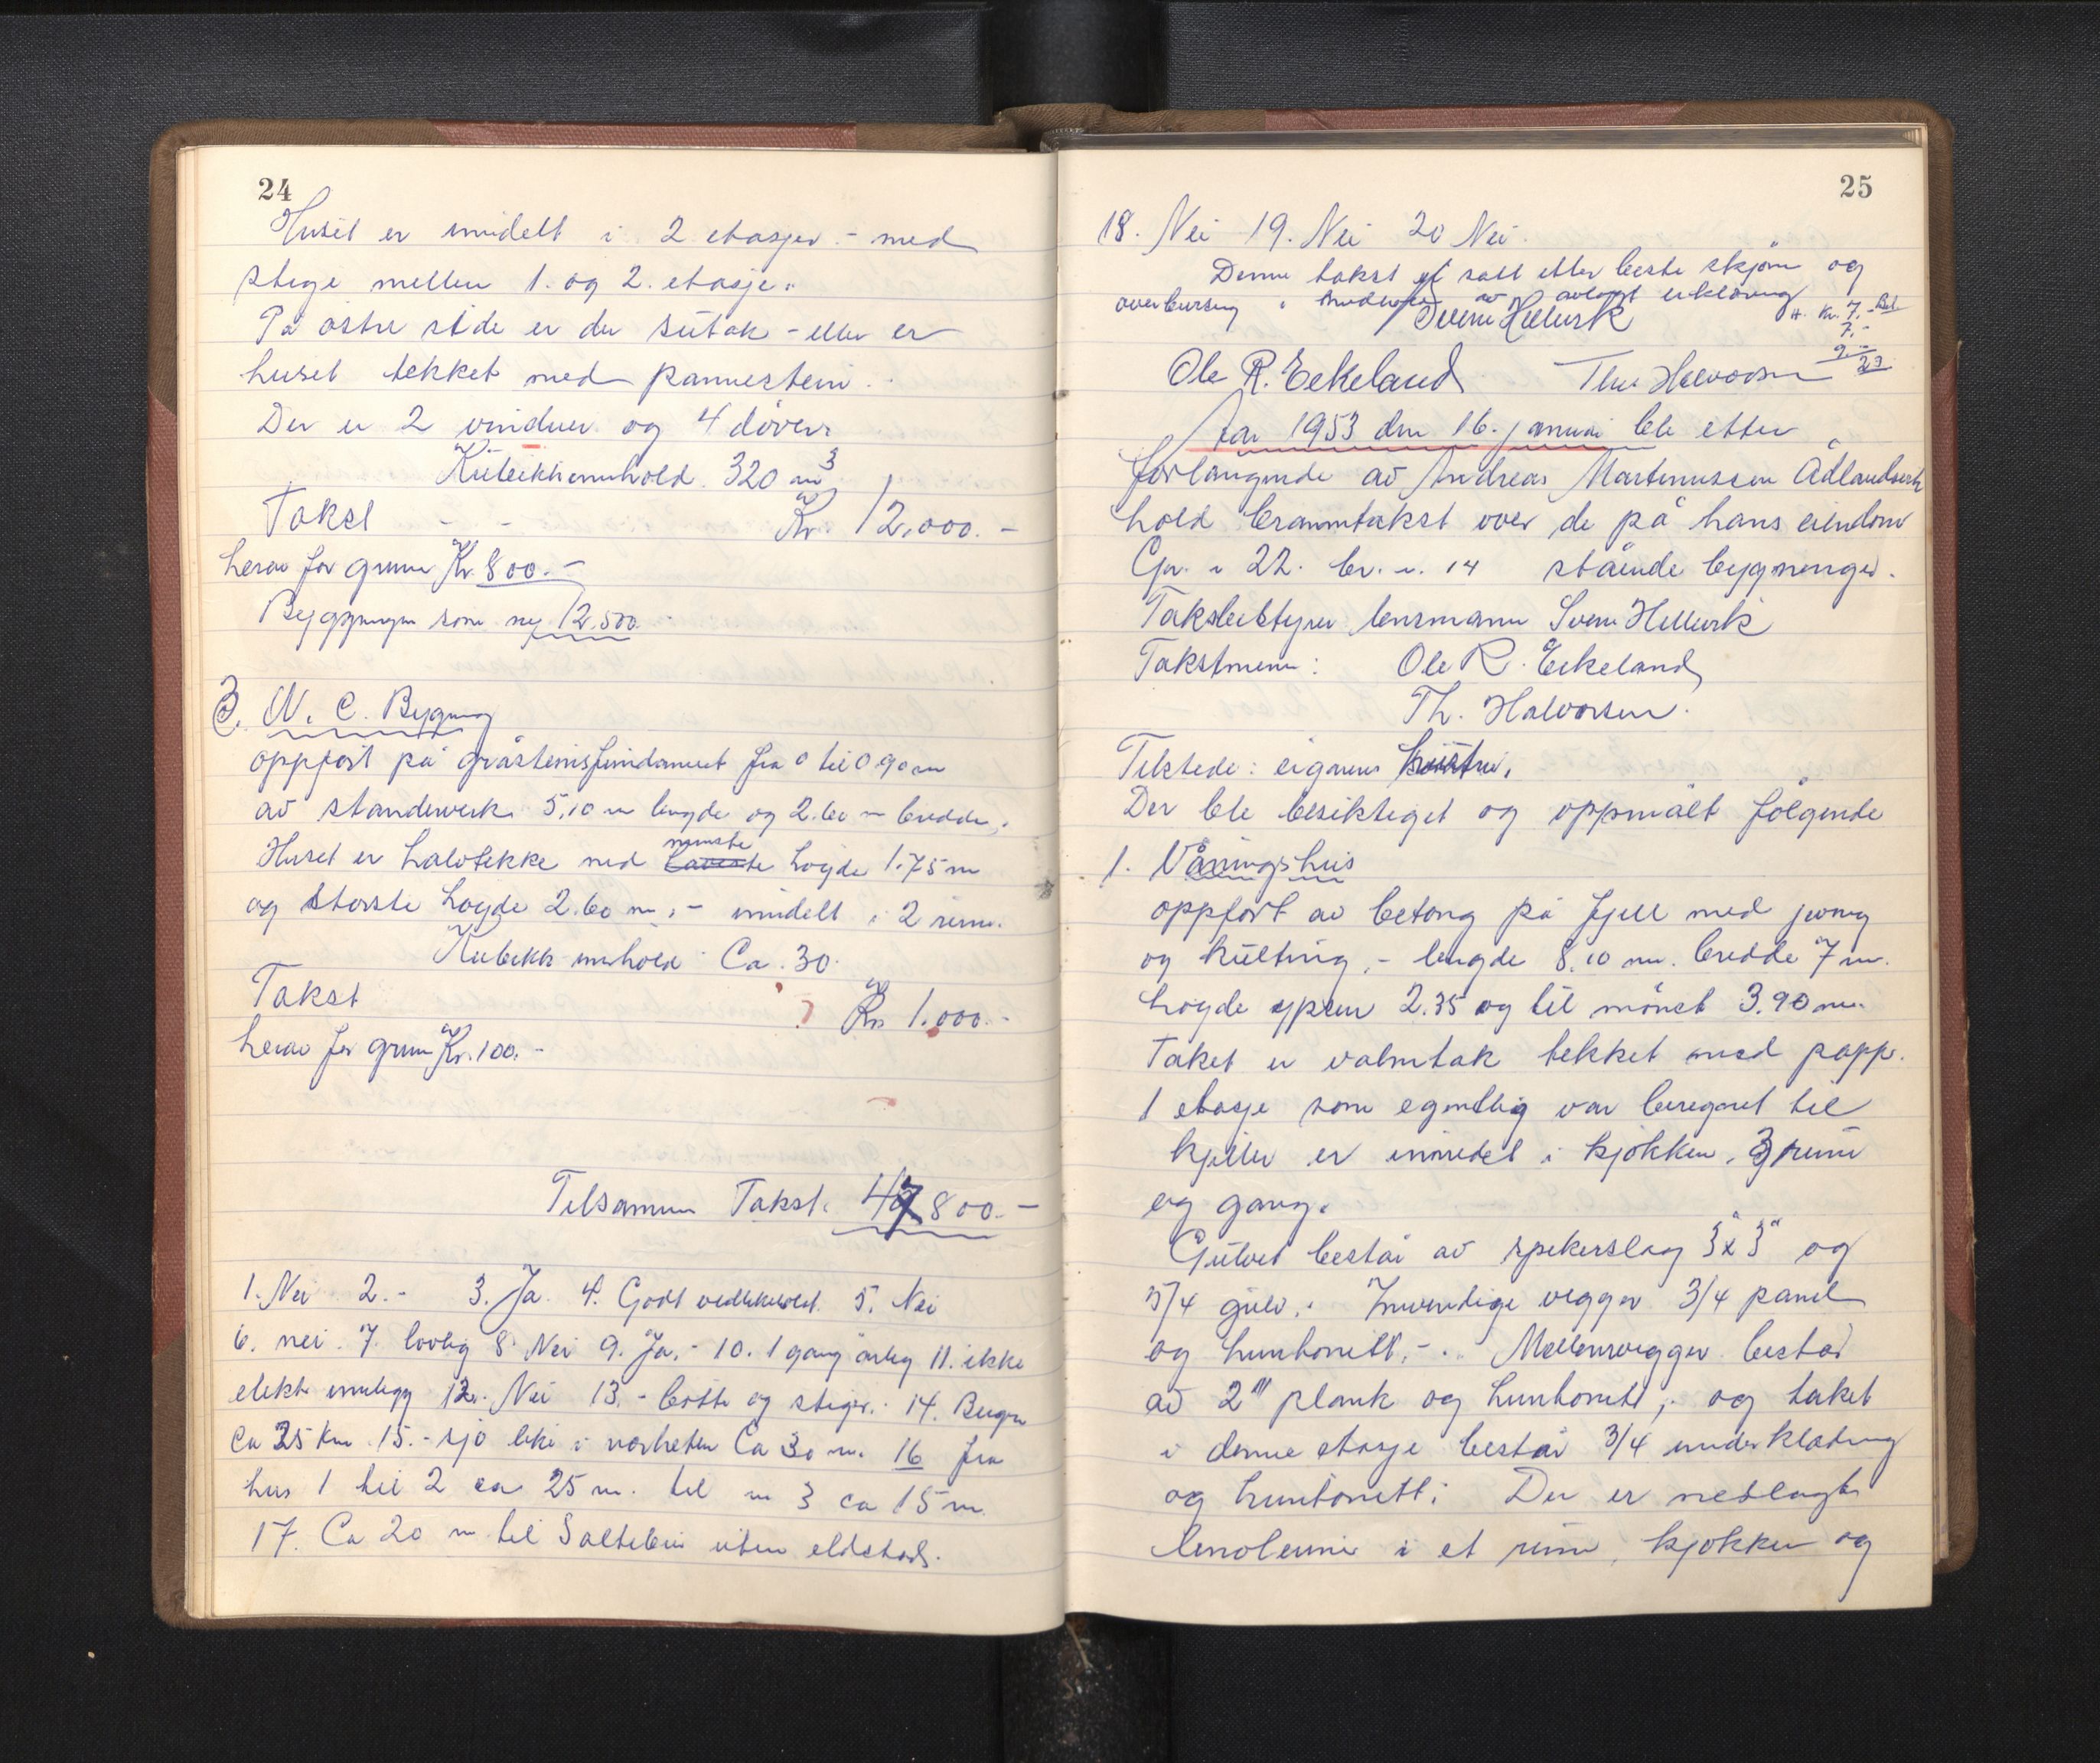 24
Huset er innidelt i 2 etasjer - med
stige mellem 1. og 2. etasje.
På østre side er der sutak - eller er
huset tekket med pannestein.
Der er 2 vinduer og 4 dører.
Kubikkinnhold 320 m³
Takst - - Kr. 12.000.-
herav for grunn Kr. 800.-
Byggningen som ny 12.500
3. W. C. Bygning
oppført på gråsteinsfundament fra 0 til 0.90 m
av standerverk 5,10 m lengde og 2.60 m bredde.
Huset er halvtekke med laveste minste høyde 1.75 m
og største høyde 2.60 m, - innidelt i 2 rum.
Kubikk innhold Ca. 30.
Takst Kr 1.000.-
herav for grunn Kr. 100.-
Tilsammen Takst. 800.-
1. Nei 2.- 3. Ja 4. Godt vedlikeholdt 5. Nei
6. nei. 7. lovlig 8. Nei 9. Ja, - 10. 1 gang årleg 11. ikke
elektr innlegg 12. Nei 13. - bøtte og stiger. 14. Bergen
Ca 35 km 15. - sjø like i nærheten Ca 30 m. 16 fra
hus 1 til 2 ca 25 m. til " 3 ca 15 m.
17. Ca 20 m til Saltebu uten eldsted.
25
18. Nei 19. Nei 20 Nei.
Denne takst er satt etter beste skjøn og
overbevisning i av avlagt erklæring
H. Kr. 7.-
7.-
9.-
23
Ole R. Eekeland Thv Halvorsen
År 1953 den 16. januar ble etter
forlangende av Andreas Martinussen Ådlandsvik
hold branntakst over de på hans eiendom
Gr. n 22. br. n. 14 stående bygnenger.
Takstbestyrer lensmann Svein Hellevik
Takstmenn: Ole R. Eekeland
Th. Halvorsen.
Tilstede: eigarens hustru.
Der ble besiktiget og oppmålt følgende
1. Våningshus
oppført av betong på fjell med jerng
og kulting, - lengde 8.10 m. bredde 7 m.
høyde gjesen 2.35 og til mønet 3.90 m.
Taket er valmtak tekket med papp.
1 etasje som egentlig var beregnet til
kjeller er innredet i kjøkken, 3 rum
og gang.
Gulvet består av spikerslag 3"x3" og
5/4 gulv. Innvendige vegger 3/4 panel
og huntonitt, -. Mellemvegger består
av 2" plank og huntonitt, og taket
i denne etasje består 3/4 underkledning
og huntonitt. Der er nedlagt
linoleum i et rum, kjøkken og